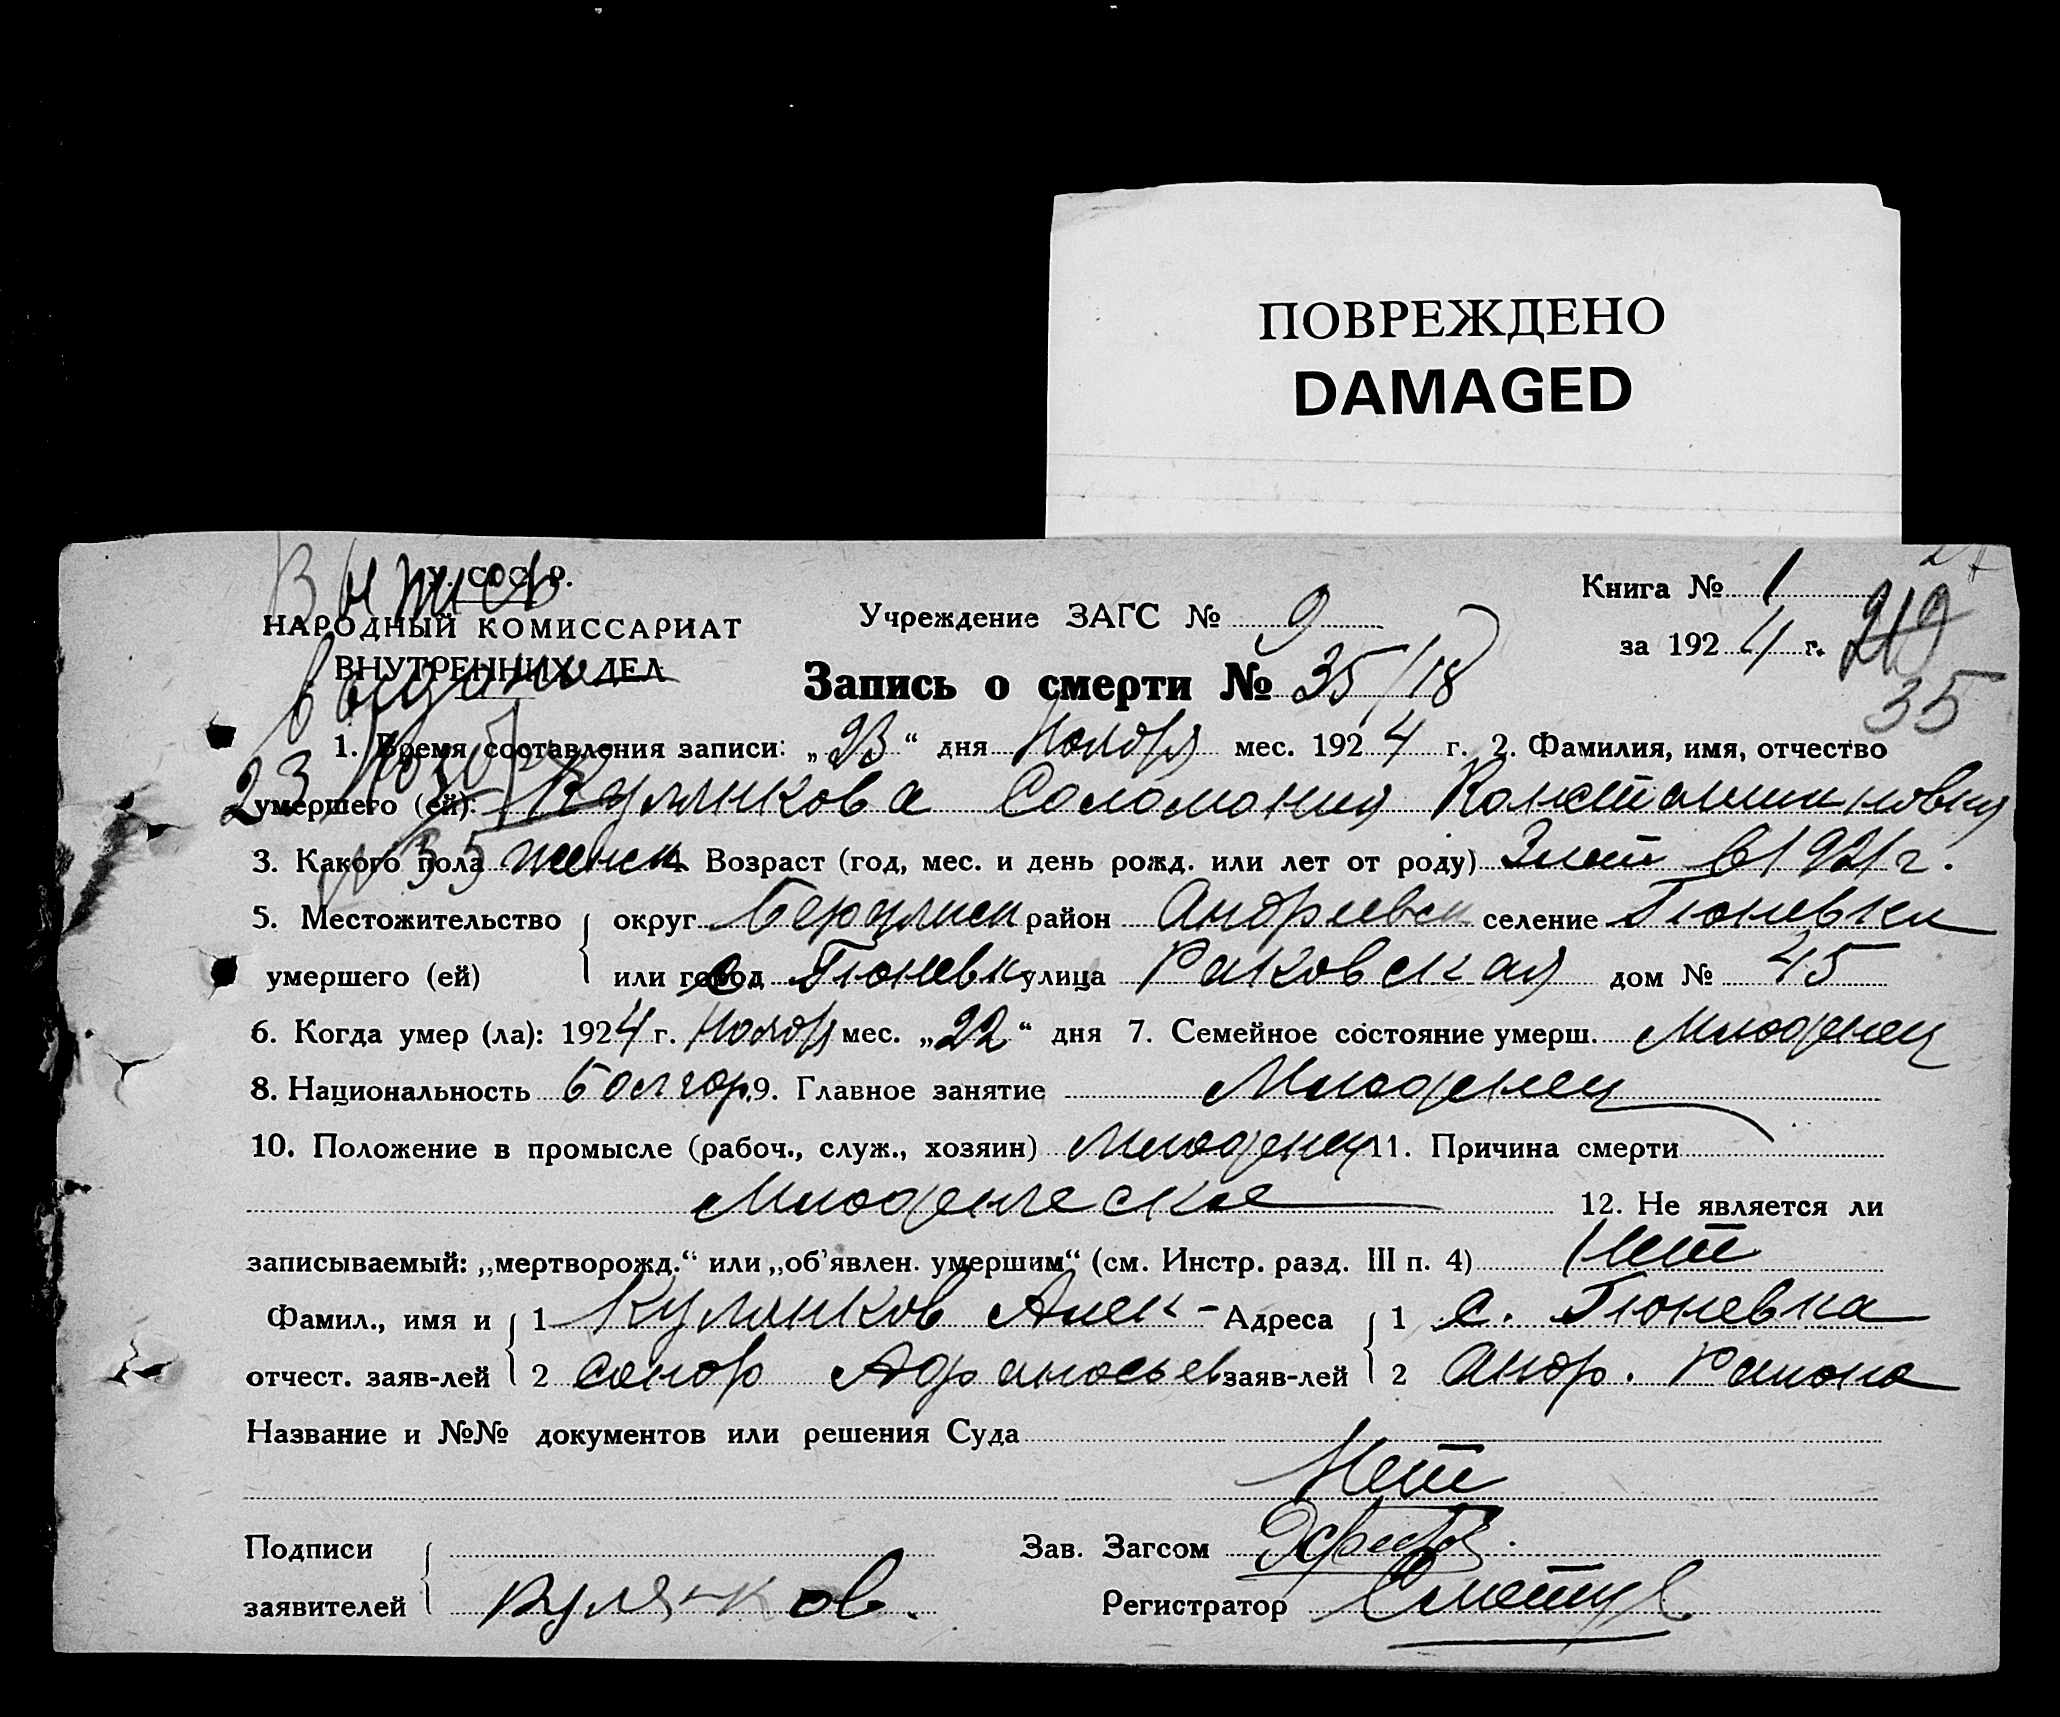 ПОВРЕЖДЕНО
DAMAGED
У. С. С. Р.
НАРОДНЫЙ КОМИССАРИАТ
ВНУТРЕННИХ ДЕЛ
Выпись
выдана
23
№ 35
Учреждение ЗАГС № 9
Книга № 1
за 1924 г.
219
35
Запись о смерти № 35/18
1. Время составления записи: „23“ дня Ноября мес. 1924 г. 2. Фамилия, имя, отчество
умершего (ей): Кулянкова Соломония Константиновна
3. Какого пола женск 4. Возраст (год, мес. и день рожд. или лет от роду) 3 лет в 1921 г.
5. Местожительство округ Бердянск район Андреевск селение Гюневки
умершего (ей) или город с Гюневк улица Раковская дом № 45
6. Когда умер (ла): 1924 г. Ноября мес. „22“ дня 7. Семейное состояние умерш. Младенец
8. Национальность болгар. 9. Главное занятие Младенец
10. Положение в промысле (рабоч., служ., хозяин) Младенец 11. Причина смерти
Младенческое 12. Не является ли
записываемый: „мертворожд.“ или „об’явлен. умершим“ (см. Инстр. разд. III п. 4) Нет
Фамил., имя и 1 Кулянков Алек- Адреса 1 с. Гюневка
отчест. заяв-лей 2 сандр Афанасьев заяв-лей 2 Андр. Района
Название и №№ документов или решения Суда
Нет
Подписи Зав. Загсом
заявителей Кулянков. Регистратор